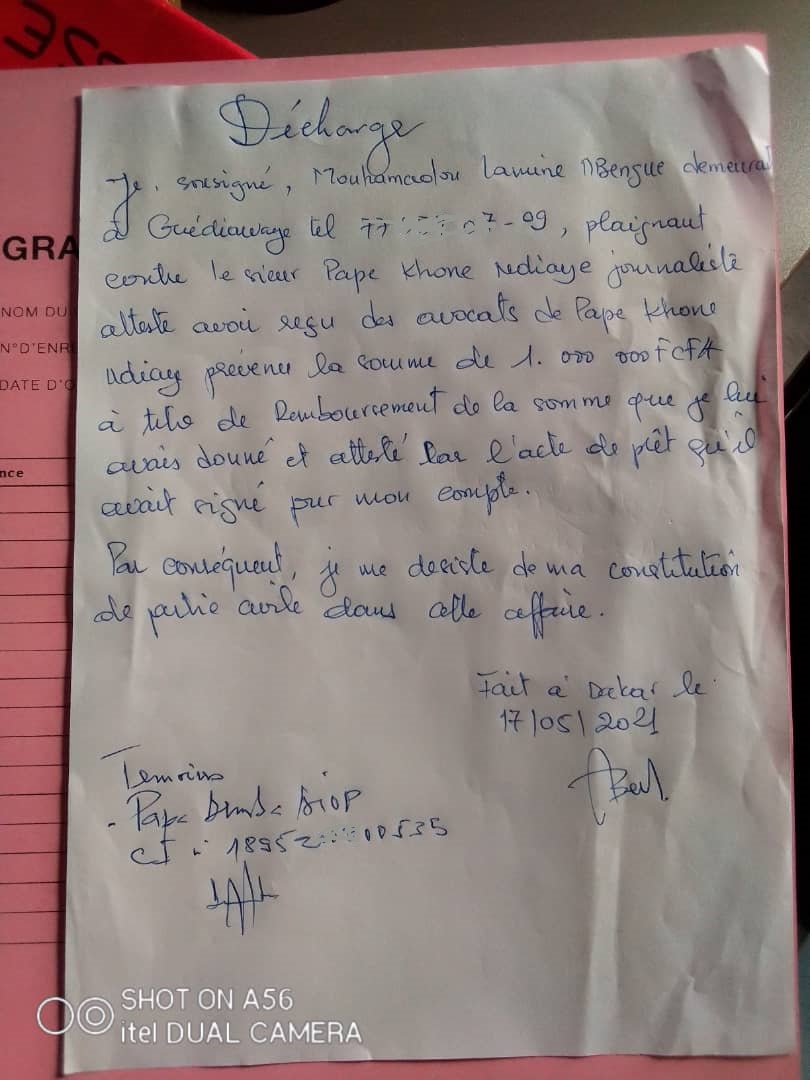 Décharge
Je, sousigné, Mouhamadou Lamine MBengue demeurant
à Guédiawaye tel 77 07-09, plaignant
contre le sieur Pape Khone Ndiaye journaliste
atteste avoir reçu des avocats de Pape Khone
Ndiay prévenu la somme de 1. 000 000 FCFA
à titre de Remboursement de la somme que je lui
avais donné et attesté par l'acte de prêt qu'il
avait signé pur mon compte.
Par conséquent, je me desiste de ma constitution
de partie civile dans cette affaire.
Fait à Dakar le
17/05/2021
Temoins
- Pape Demba DIOP
CI : 18952 00535
GRA
NOM DU
N°D'ENR
DATE D'O
nce
SHOT ON A56
itel DUAL CAMERA